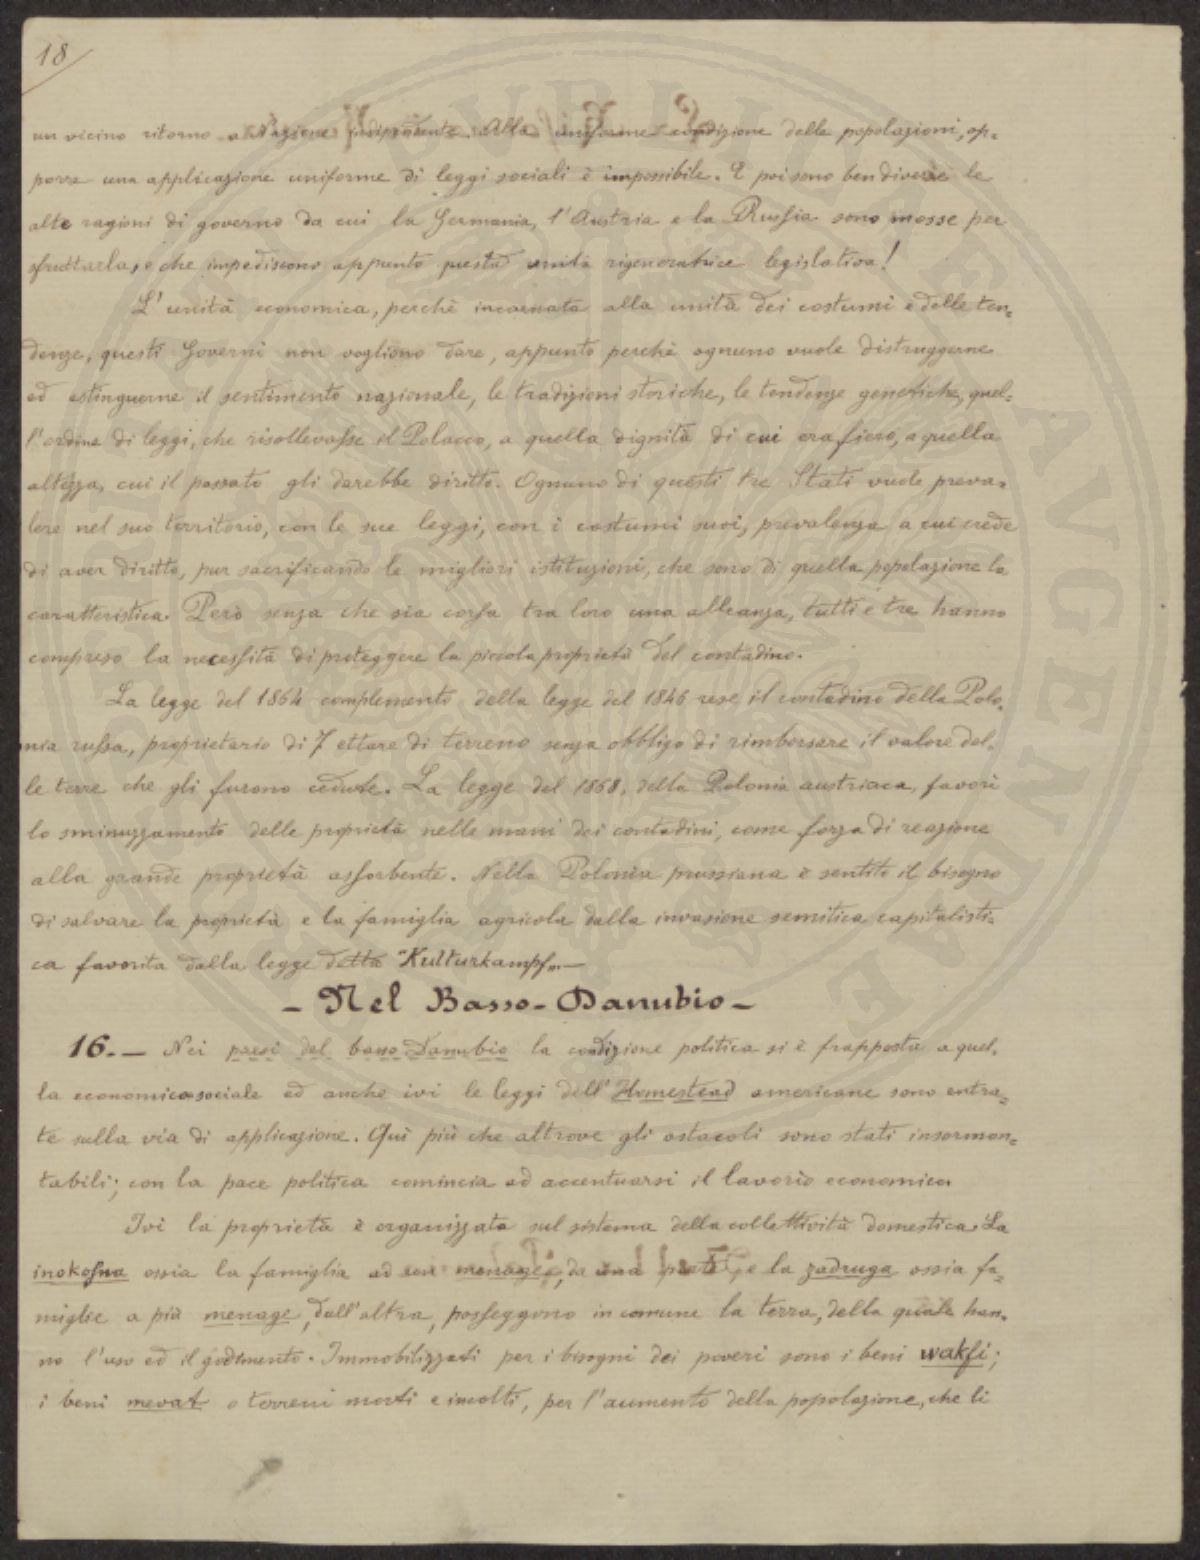 18
un vicino ritorno a Nazione indipendente. Alla uniforme condizione delle popolazioni, op-
porre una applicazione uniforme di leggi sociali è impossibile. E poi sono ben diverse le
alte ragioni di governo da cui la Germania, l'Austria e la Russia sono mosse per
sfruttarla, e che impediscono appunto questa unità rigeneratrice legislativa!
L'unità economica, perchè incarnata alla unità dei costumi e delle ten-
denze, questi Governi non vogliono dare, appunto perchè ognuno vuole distruggerne
ed estinguerne il sentimento nazionale, le tradizioni storiche, le tendenze genetiche, quel-
l'ordine di leggi, che risollevasse il Polacco, a quella dignità di cui era fiero, a quella
altezza, cui il passato gli darebbe diritto. Ognuno di questi tre Stati vuole preva-
lere nel suo territorio, con le sue leggi, con i costumi suoi, prevalenza a cui crede
di aver diritto, pur sacrificando le migliori istituzioni, che sono di quella popolazione la
caratteristica. Però senza che sia corsa tra loro una alleanza, tutti e tre hanno
compreso la necessità di proteggere la piccola proprietà del contadino.
La legge del 1864 complemento della legge del 1846 rese il contadino della Polo-
nia russa, proprietario di 7 ettare di terreno senza obbligo di rimborsare il valore del-
le terre che gli furono cedute. La legge del 1868, della Polonia austriaca, favorì
lo sminuzzamento delle proprietà nelle mani dei contadini, come forza di reazione
alla grande proprietà assorbente. Nella Polonia prussiana è sentito il bisogno
di salvare la proprietà e la famiglia agricola dalla invasione semitica capitalisti-
ca favorita dalla legge detta "Kulturkampf".—
- Nel Basso-Danubio -
16.- Nei paesi del basso Danubio la condizione politica si è frapposta a quel-
la economico sociale ed anche ivi le leggi dell'Homestead americane sono entra-
te sulla via di applicazione. Qui più che altrove gli ostacoli sono stati insormon-
tabili; con la pace politica comincia ad accentuarsi il lavorìo economico.
Ivi la proprietà è organizzata sul sistema della collettività domestica. La
inokosna ossia la famiglia ad un menage, da una parte, e la zadruga ossia fa-
miglie a più menage, dall'altra, posseggono in comune la terra, della quale han-
no l'uso ed il godimento. Immobilizzati per i bisogni dei poveri sono i beni wakfi;
i beni mevat o terreni morti e incolti, per l'aumento della popolazione, che li